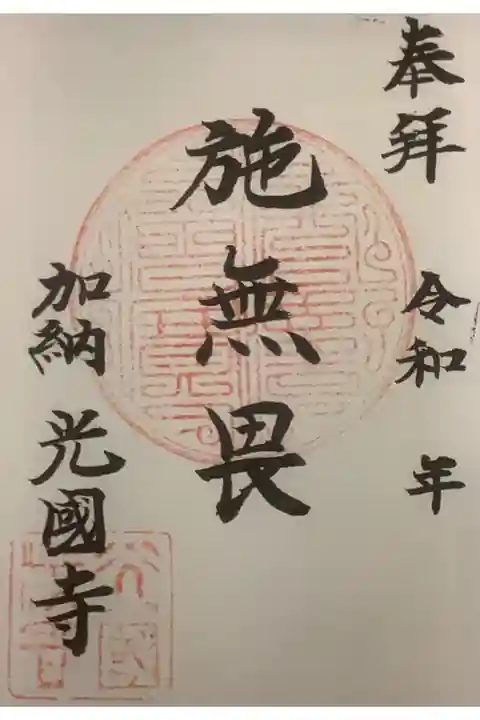 奉拜 令和 年
施無畏
加納 光國寺